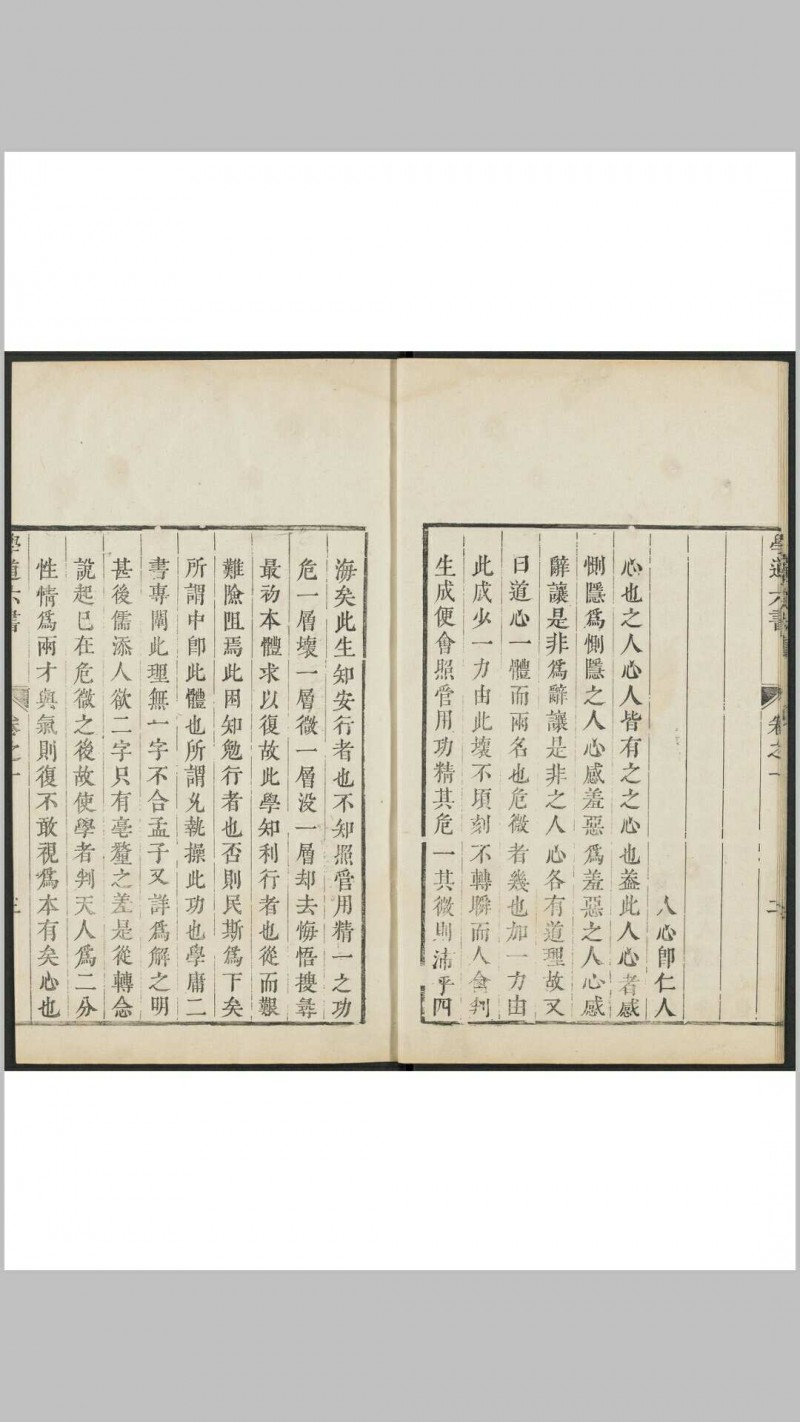 學道六書
卷之一
二
人心卽仁人
心也之人心人皆有之之心也葢此人心者感
惻隱爲惻隱之人心感羞惡爲羞惡之人心感
辭讓是非爲辭讓是非之人心各有道理故又
曰道心一體而兩名也危微者幾也加一力由
此成少一力由此壞不頃刻不轉瞬而人禽判
生成便會照管用功精其危一其微則沛乎四
海矣此生知安行者也不知照管用精一之功
危一層壞一層微一層没一層却去悔悟搜尋
最初本體求以復故此學知利行者也從而艱
難險阻焉此困知勉行者也否則民斯爲下矣
所謂中卽此體也所謂允執操此功也學庸二
書專闡此理無一字不合孟子又詳爲解之明
甚後儒添人欲二字只有毫釐之差是從轉念
說起已在危微之後故使學者判天人爲二分
性情爲兩才與氣則復不敢視爲本有矣心也
學道六書
卷之一
三